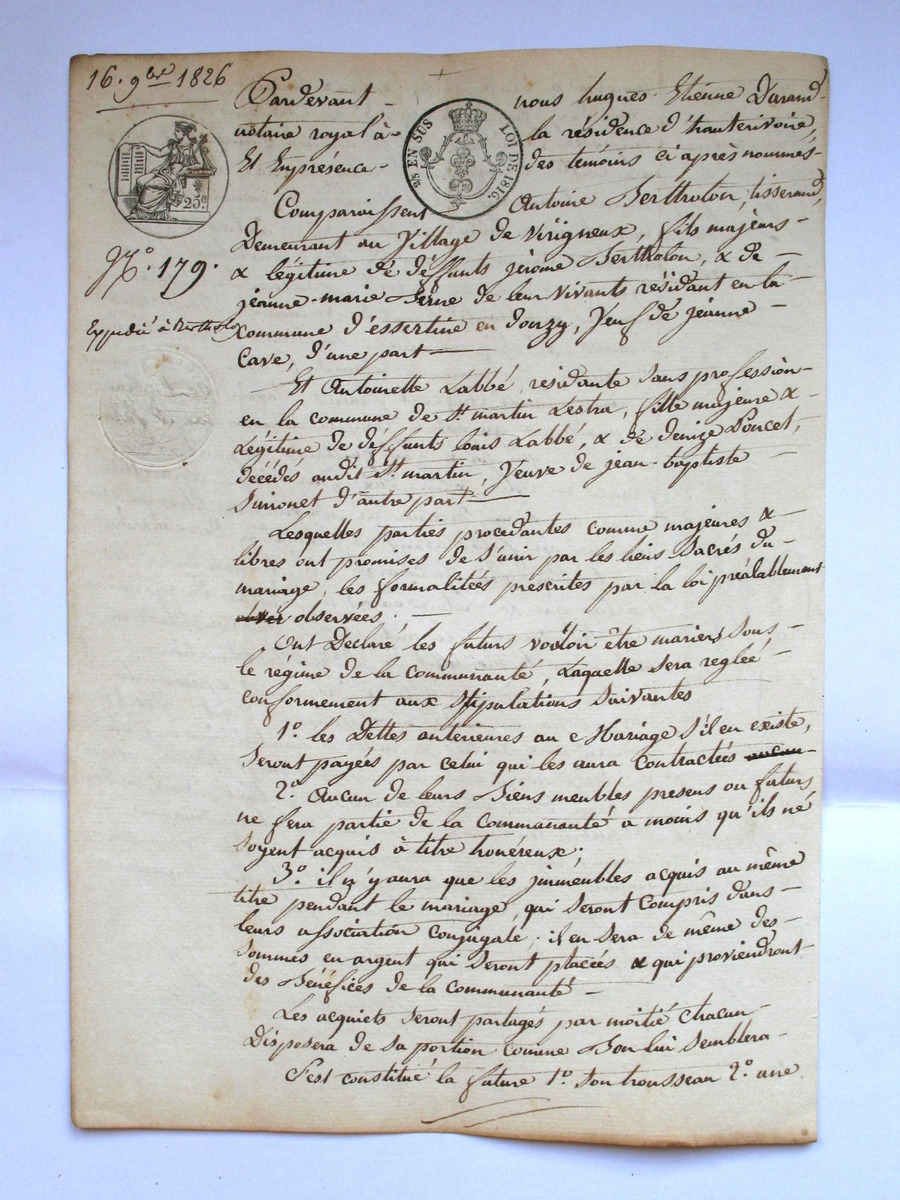 16. 9bre 1826
Pardevant - nous hugues Etienne Durand
notaire royal à - la résidence d'hauterivoire,
Et Enprésence - des temoins ci après nommés -
2/6 EN SUS LOI DE 1816.
25c
Comparoissent Antoine Bertholon, tisserand,
Demeurant au Village de Virigneux, fils majeurs -
& légitime de déffunts jérome Bertholon, & de -
N.° 179.
jeanne-marie de leur vivants résidant en la -
Expedié à Bertholon
commune d'essertine en Donzy, Veuf de jeanne -
Cave, d'une part -
Et Antoinette Labbé, residante sans profession -
en la commune de St martin Lestra, fille majeure & -
Légitime de déffunts louis Labbé, & de Denize Poncet,
décédés audit St martin, Veuve de jean-baptiste -
d'autre part -
Lesquelles parties procedantes comme majeures & -
libres ont promises de s'unir par les liens Sacrés du -
mariage, les formalitées prescrites par la loi préalablement
observées. -
Ont Déclaré les futurs vouloir être mariers sous -
le régime de la communauté, Laquelle sera regléé -
conformement aux stipulations Suivantes
1.° les Dettes anterieures au Mariage s'il en existe,
Seront payées par celui qui les aura Contractées aucun
2.° Aucun de leurs Biens meubles presens ou futurs
ne fera partie de la Communauté a moins qu'ils né
soyent acquis à titre honéreux;
3.° il n'y aura que les jmmeubles acquis au même
titre pendant le mariage, qui seront Compris dans -
leurs association Conjugale, il en sera de même des -
Sommes en argent qui seront placées & qui proviendront
des Bénéfices de la Communauté -
Les acquets seront partagés par moitié chacun -
Disposera de sa portion comme Bon lui semblera -
S'est constitué la future 1.° son trousseau 2.° une